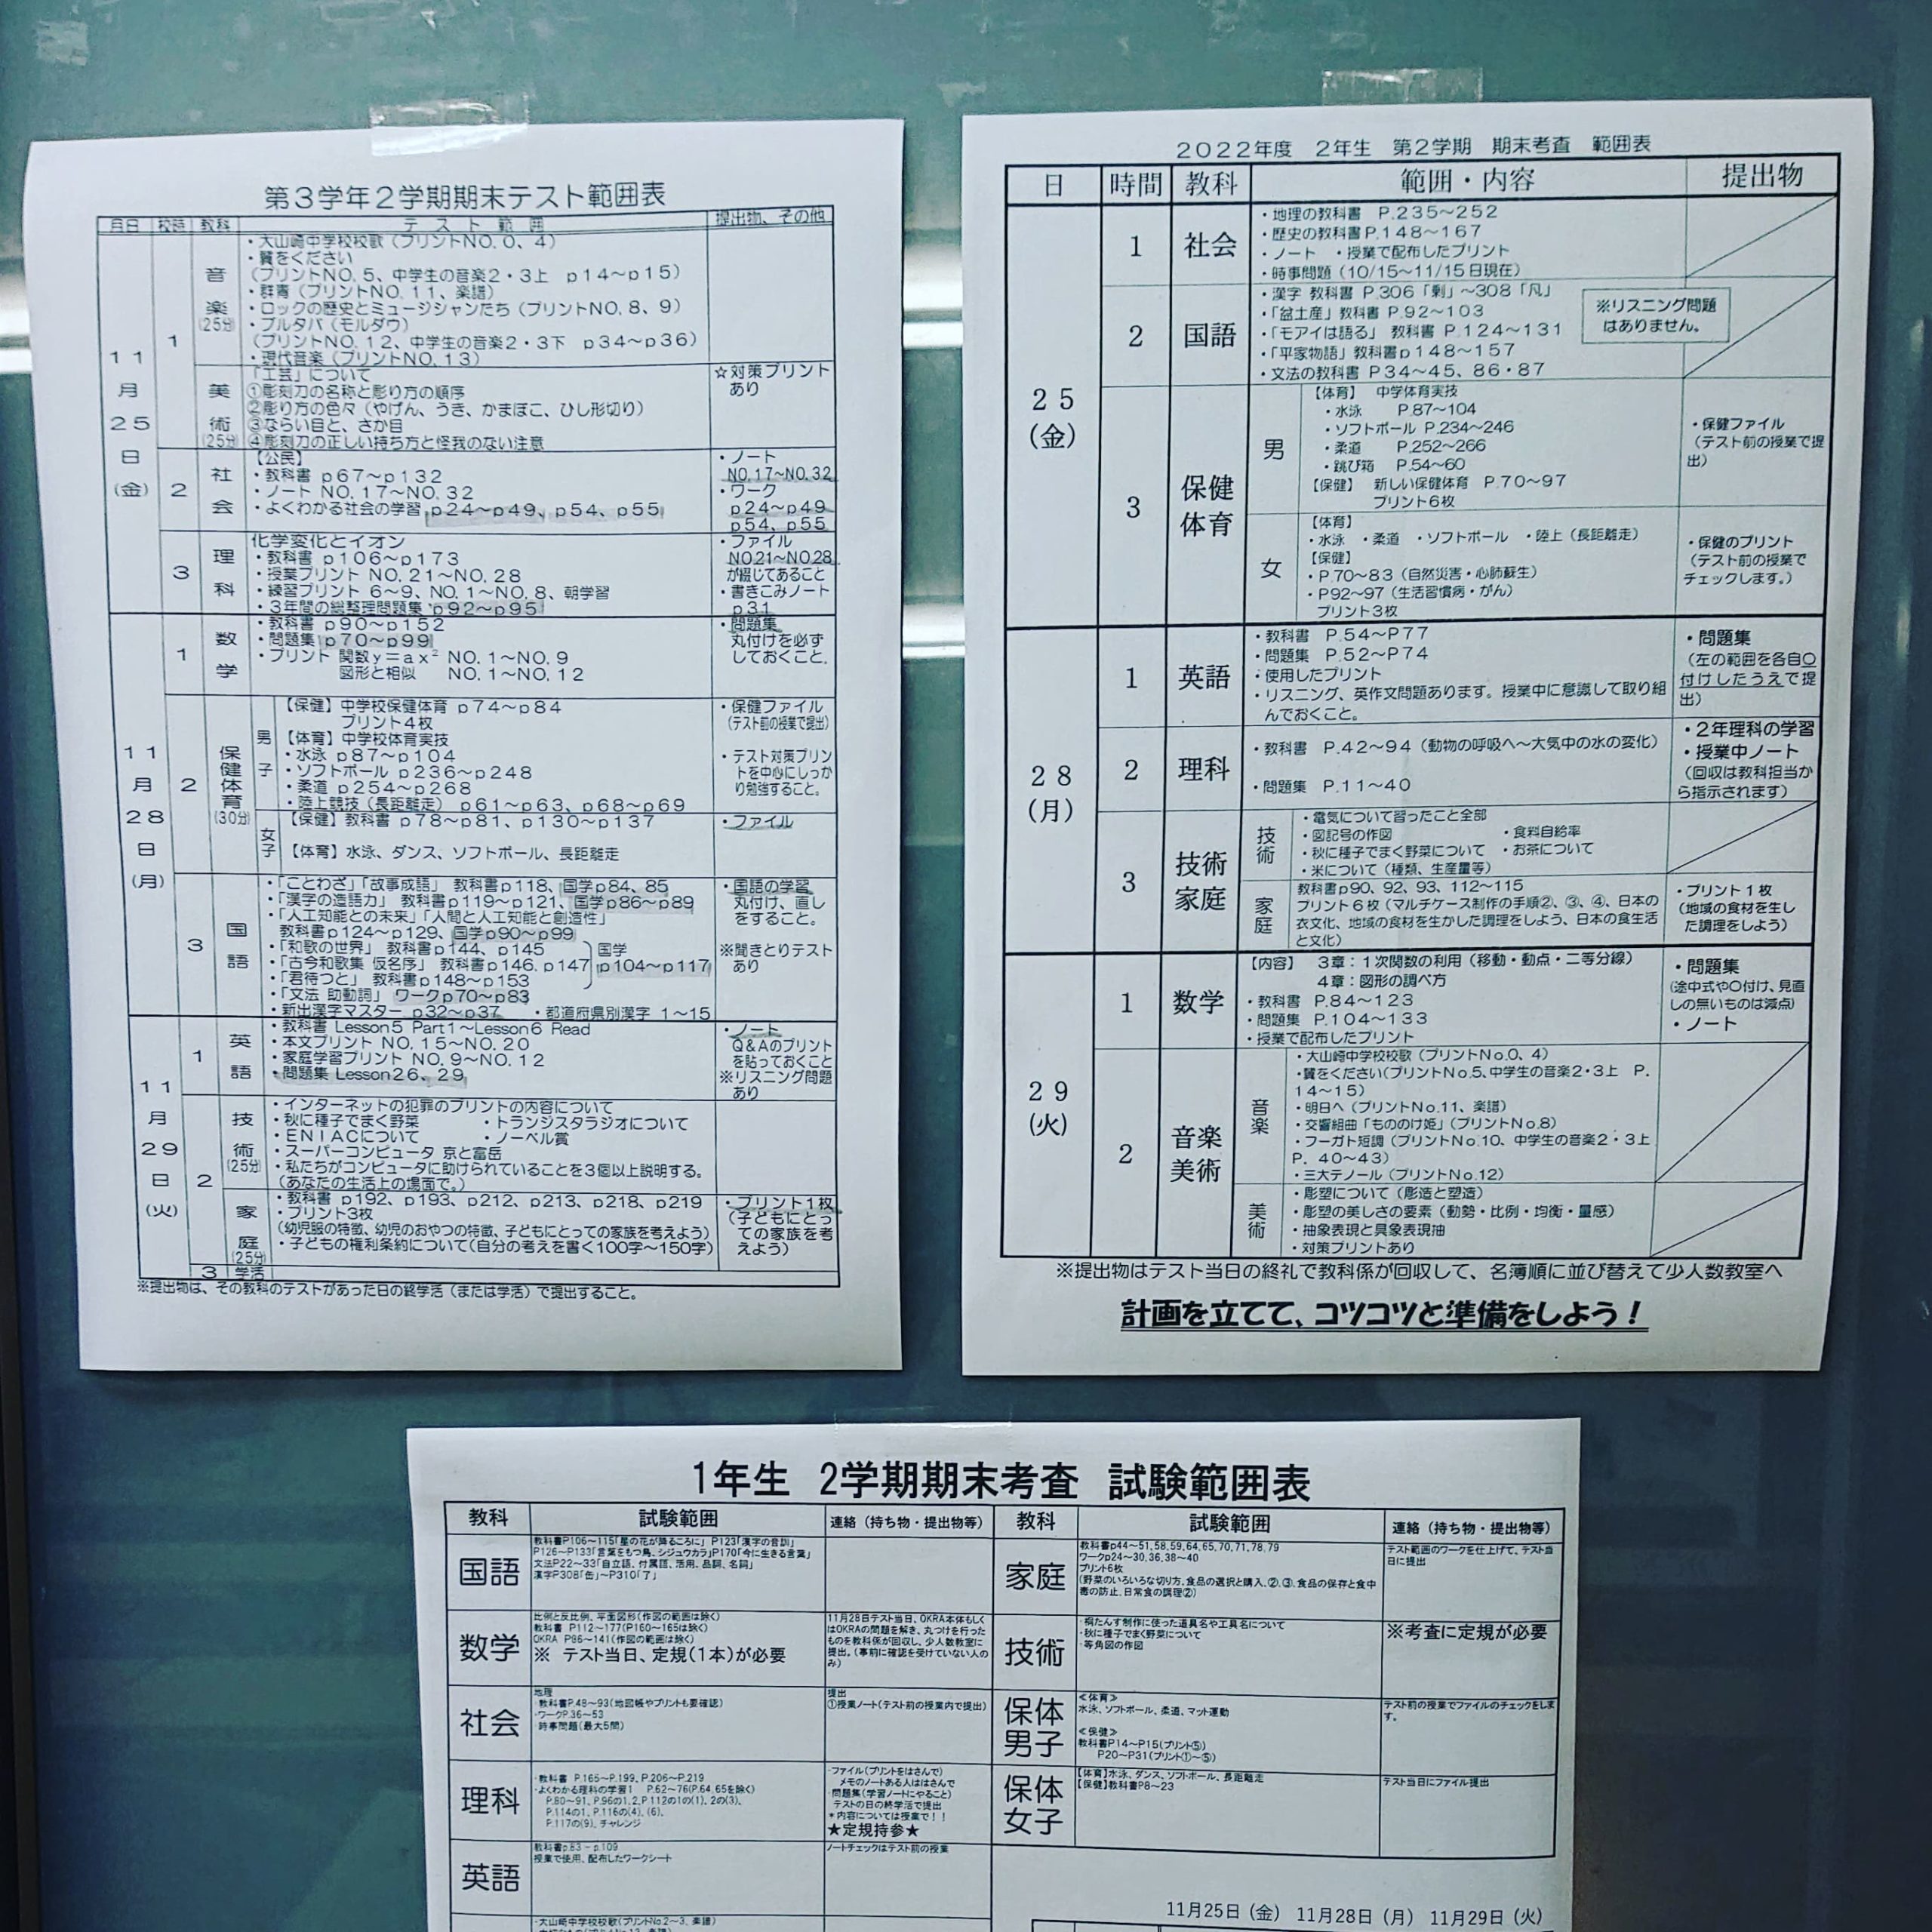 第3学年2学期期末テスト範囲表
月日 校時 教科 テスト範囲 提出物、その他
11月25日(金)
1
音楽(25分)
・大山崎中学校校歌(プリントNO.0、4)
・翼をください
(プリントNO.5、中学生の音楽2・3上 p14～p15)
・群青(プリントNO.11、楽譜)
・ロックの歴史とミュージシャンたち(プリントNO.8、9)
・ブルタバ(モルダウ)
(プリントNO.12、中学生の音楽2・3下 p34～p36)
・現代音楽(プリントNO.13)
美術(25分)
「工芸」について
①彫刻刀の名称と彫り方の順序
②彫り方の色々(やげん、うき、かまぼこ、ひし形切り)
③ならい目と、さか目
④彫刻刀の正しい持ち方と怪我のない注意
☆対策プリント
あり
2
社会
【公民】
・教科書 p67～p132
・ノート NO.17～NO.32
・よくわかる社会の学習 p24～p49、p54、p55
・ノート
NO.17～NO.32
・ワーク
p24～p49
p54、p55
3
理科
化学変化とイオン
・教科書 p106～p173
・授業プリント NO.21～NO.28
・練習プリント 6～9、NO.1～NO.8、朝学習
・3年間の総整理問題集 p92～p95
・ファイル
NO.21～NO.28
が綴じてあること
・書きこみノート
p31
11月28日(月)
1
数学
・教科書 p90～p152
・問題集 p70～p99
・プリント 関数y=ax² NO.1～NO.9
図形と相似 NO.1～NO.12
・問題集
丸付けを必ず
しておくこと.
2
保健体育(30分)
男子
【保健】中学校保健体育 p74～p84
プリント4枚
【体育】中学校体育実技
・水泳 p87～p104
・ソフトボール p236～p248
・柔道 p254～p268
・陸上競技(長距離走) p61～p63、p68～p69
・保健ファイル
(テスト前の授業で提出)
・テスト対策プリン
トを中心にしっか
り勉強すること。
女子
【保健】教科書 p78～p81、p130～p137
【体育】水泳、ダンス、ソフトボール、長距離走
・ファイル
3
国語
・「ことわざ」「故事成語」 教科書p118、国学p84、85
・「漢字の造語力」 教科書p119～p121、国学p86～p89
・「人工知能との未来」「人間と人工知能と創造性」
教科書p124～p129、国学p90～p99
・「和歌の世界」 教科書p144、p145
・「古今和歌集 仮名序」 教科書p146.p147
・「君待つと」 教科書p148～p153
国学
p104～p117
・「文法 助動詞」 ワークp70～p83
・新出漢字マスター p32～p37 ・都道府県別漢字 1～15
・国語の学習
丸付け、直し
をすること。
※聞きとりテスト
あり
11月29日(火)
1
英語
・教科書 Lesson5 Part1～Lesson6 Read
・本文プリント NO.15～NO.20
・家庭学習プリント NO.9～NO.12
・問題集 Lesson26、29
・ノート
Q&Aのプリント
を貼っておくこと
※リスニング問題
あり
2
技術(25分)
・インターネットの犯罪のプリントの内容について
・秋に種子でまく野菜 ・トランジスタラジオについて
・ENIACについて ・ノーベル賞
・スーパーコンピュータ 京と富岳
・私たちがコンピュータに助けられていることを3個以上説明する。
(あなたの生活上の場面で。)
家庭(25分)
・教科書 p192、p193、p212、p213、p218、p219
・プリント3枚
(幼児服の特徴、幼児のおやつの特徴、子どもにとっての家族を考えよう)
・子どもの権利条約について(自分の考えを書く100字～150字)
・プリント1枚
(子どもにとっ
ての家族を考
えよう)
3 学活
※提出物は、その教科のテストがあった日の終学活(または学活)で提出すること。
2022年度 2年生 第2学期 期末考査 範囲表
日 時間 教科 範囲・内容 提出物
25(金)
1
社会
・地理の教科書 P.235～252
・歴史の教科書P.148～167
・ノート ・授業で配布したプリント
・時事問題(10/15～11/15日現在)
2
国語
・漢字 教科書 P.306「剰」～308「凡」
・「盆土産」教科書 P.92～103
・「モアイは語る」 教科書 P.124～131
・「平家物語」教科書p148～157
・文法の教科書 P34～45、86・87
※リスニング問題
はありません。
3
保健体育
男
【体育】 中学体育実技
・水泳 P.87～104
・ソフトボール P.234～246
・柔道 P.252～266
・跳び箱 P.54～60
【保健】 新しい保健体育 P.70～97
プリント6枚
・保健ファイル
(テスト前の授業で提
出)
女
【体育】
・水泳 ・柔道 ・ソフトボール ・陸上(長距離走)
【保健】
・P.70～83(自然災害・心肺蘇生)
・P92～97(生活習慣病・がん)
プリント3枚
・保健のプリント
(テスト前の授業で
チェックします。)
28(月)
1
英語
・教科書 P.54～P77
・問題集 P.52～P74
・使用したプリント
・リスニング、英作文問題あります。授業中に意識して取り組
んでおくこと。
・問題集
(左の範囲を各自○
付けしたうえで提
出)
2
理科
・教科書 P.42～94(動物の呼吸へ～大気中の水の変化)
・問題集 P.11～40
・2年理科の学習
・授業中ノート
(回収は教科担当か
ら指示されます)
3
技術家庭
技術
・電気について習ったこと全部
・図記号の作図 ・食料自給率
・秋に種子でまく野菜について ・お茶について
・米について(種類、生産量等)
家庭
教科書p90、92、93、112～115
プリント6枚(マルチケース制作の手順②、③、④、日本の
衣文化、地域の食材を生かした調理をしよう、日本の食生活
と文化)
・プリント1枚
(地域の食材を生し
た調理をしよう)
29(火)
1
数学
【内容】 3章:1次関数の利用(移動・動点・二等分線)
4章:図形の調べ方
・教科書 P.84～123
・問題集 P.104～133
・授業で配布したプリント
・問題集
(途中式や○付け、見直
しの無いものは減点)
・ノート
2
音楽美術
音楽
・大山崎中学校校歌(プリントNo.0、4)
・翼をください(プリントNo.5、中学生の音楽2・3上 P.
14～15)
・明日へ(プリントNo.11、楽譜)
・交響組曲「もののけ姫」(プリントNo.8)
・フーガト短調(プリントNo.10、中学生の音楽2・3上
P. 40～43)
・三大テノール(プリントNo.12)
美術
・彫塑について(彫造と塑造)
・彫塑の美しさの要素(動勢・比例・均衡・量感)
・抽象表現と具象表現抽
・対策プリントあり
※提出物はテスト当日の終礼で教科係が回収して、名簿順に並び替えて少人数教室へ
計画を立てて、コツコツと準備をしよう!
1年生 2学期期末考査 試験範囲表
教科 試験範囲 連絡(持ち物・提出物等) 教科 試験範囲 連絡(持ち物・提出物等)
国語
教科書P106～115「星の花が降るころに」 P123「漢字の音訓」
P126～P133「言葉をもつ鳥、シジュウカラ」P170「今に生きる言葉」
文法P22～33「自立語、付属語、活用、品詞、名詞」
漢字P308「缶」～P310「了」
家庭
教科書p44～51,58,59,64,65,70,71,78,79
ワークp24～30,36,38～40
プリント6枚
(野菜のいろいろな切り方、食品の選択と購入、②、③、食品の保存と食中
毒の防止、日常食の調理②)
テスト範囲のワークを仕上げて、テスト当
日に提出
数学
比例と反比例、平面図形(作図の範囲は除く)
教科書 P112～177(P160～165は除く)
OKRA P86～141(作図の範囲は除く)
※ テスト当日、定規(1本)が必要
11月28日テスト当日、OKRA本体もしく
はOKRAの問題を解き、丸つけを行った
ものを教科係が回収し、少人数教室に
提出。(事前に確認を受けていない人の
み)
技術
・桐たんす制作に使った道具名や工具名について
・秋に種子でまく野菜について
・等角図の作図
※考査に定規が必要
社会
地理
・教科書P.48～93(地図帳やプリントも要確認)
・ワークP.36～53
・時事問題(最大5問)
提出
①授業ノート(テスト前の授業内で提出)
保体男子
≪体育≫
水泳、ソフトボール、柔道、マット運動
≪保健≫
教科書P14～P15(プリント⑤)
P20～P31(プリント①～⑤)
テスト前の授業でファイルのチェックをしま
す。
理科
・教科書 P.165～P.199、P.206～P.219
・よくわかる理科の学習1 P.62～76(P.64,65を除く)
P.80～91、P.96の1,2、P.112の1の(1)、2の(3)、
P.114の1、P.116の(4)、(6)、
P.117の(9)、チャレンジ
・ファイル(プリントをはさんで)
メモのノートある人ははさんで
・問題集(学習ノートにやること)
テストの日の終学活で提出
*内容については授業で!!
★定規持参★
保体女子
【体育】水泳、ダンス、ソフトボール、長距離走
【保健】教科書P8～23
テスト当日にファイル提出
英語
教科書p.83-p.109
授業で使用、配布したワークシート
ノートチェックはテスト前の授業
11月25日(金) 11月28日(月) 11月29日(火)
・大山崎中学校校歌(プリントNo.2～3、楽譜)